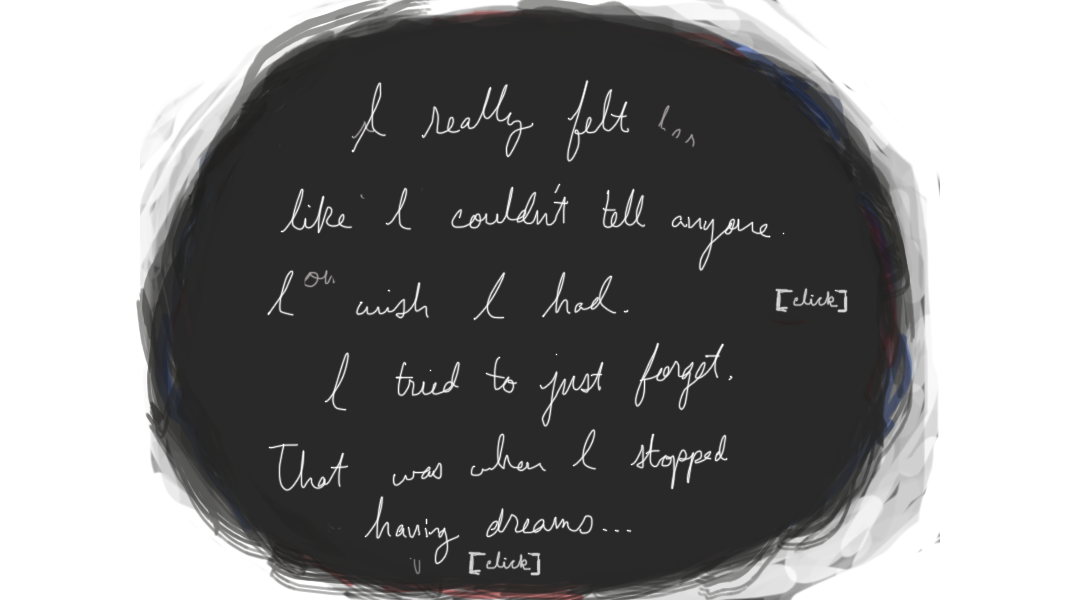 I really felt
like I couldn't tell anyone.
I wish I had.
[click]
I tried to just forget.
That was when I stopped
having dreams...
[click]